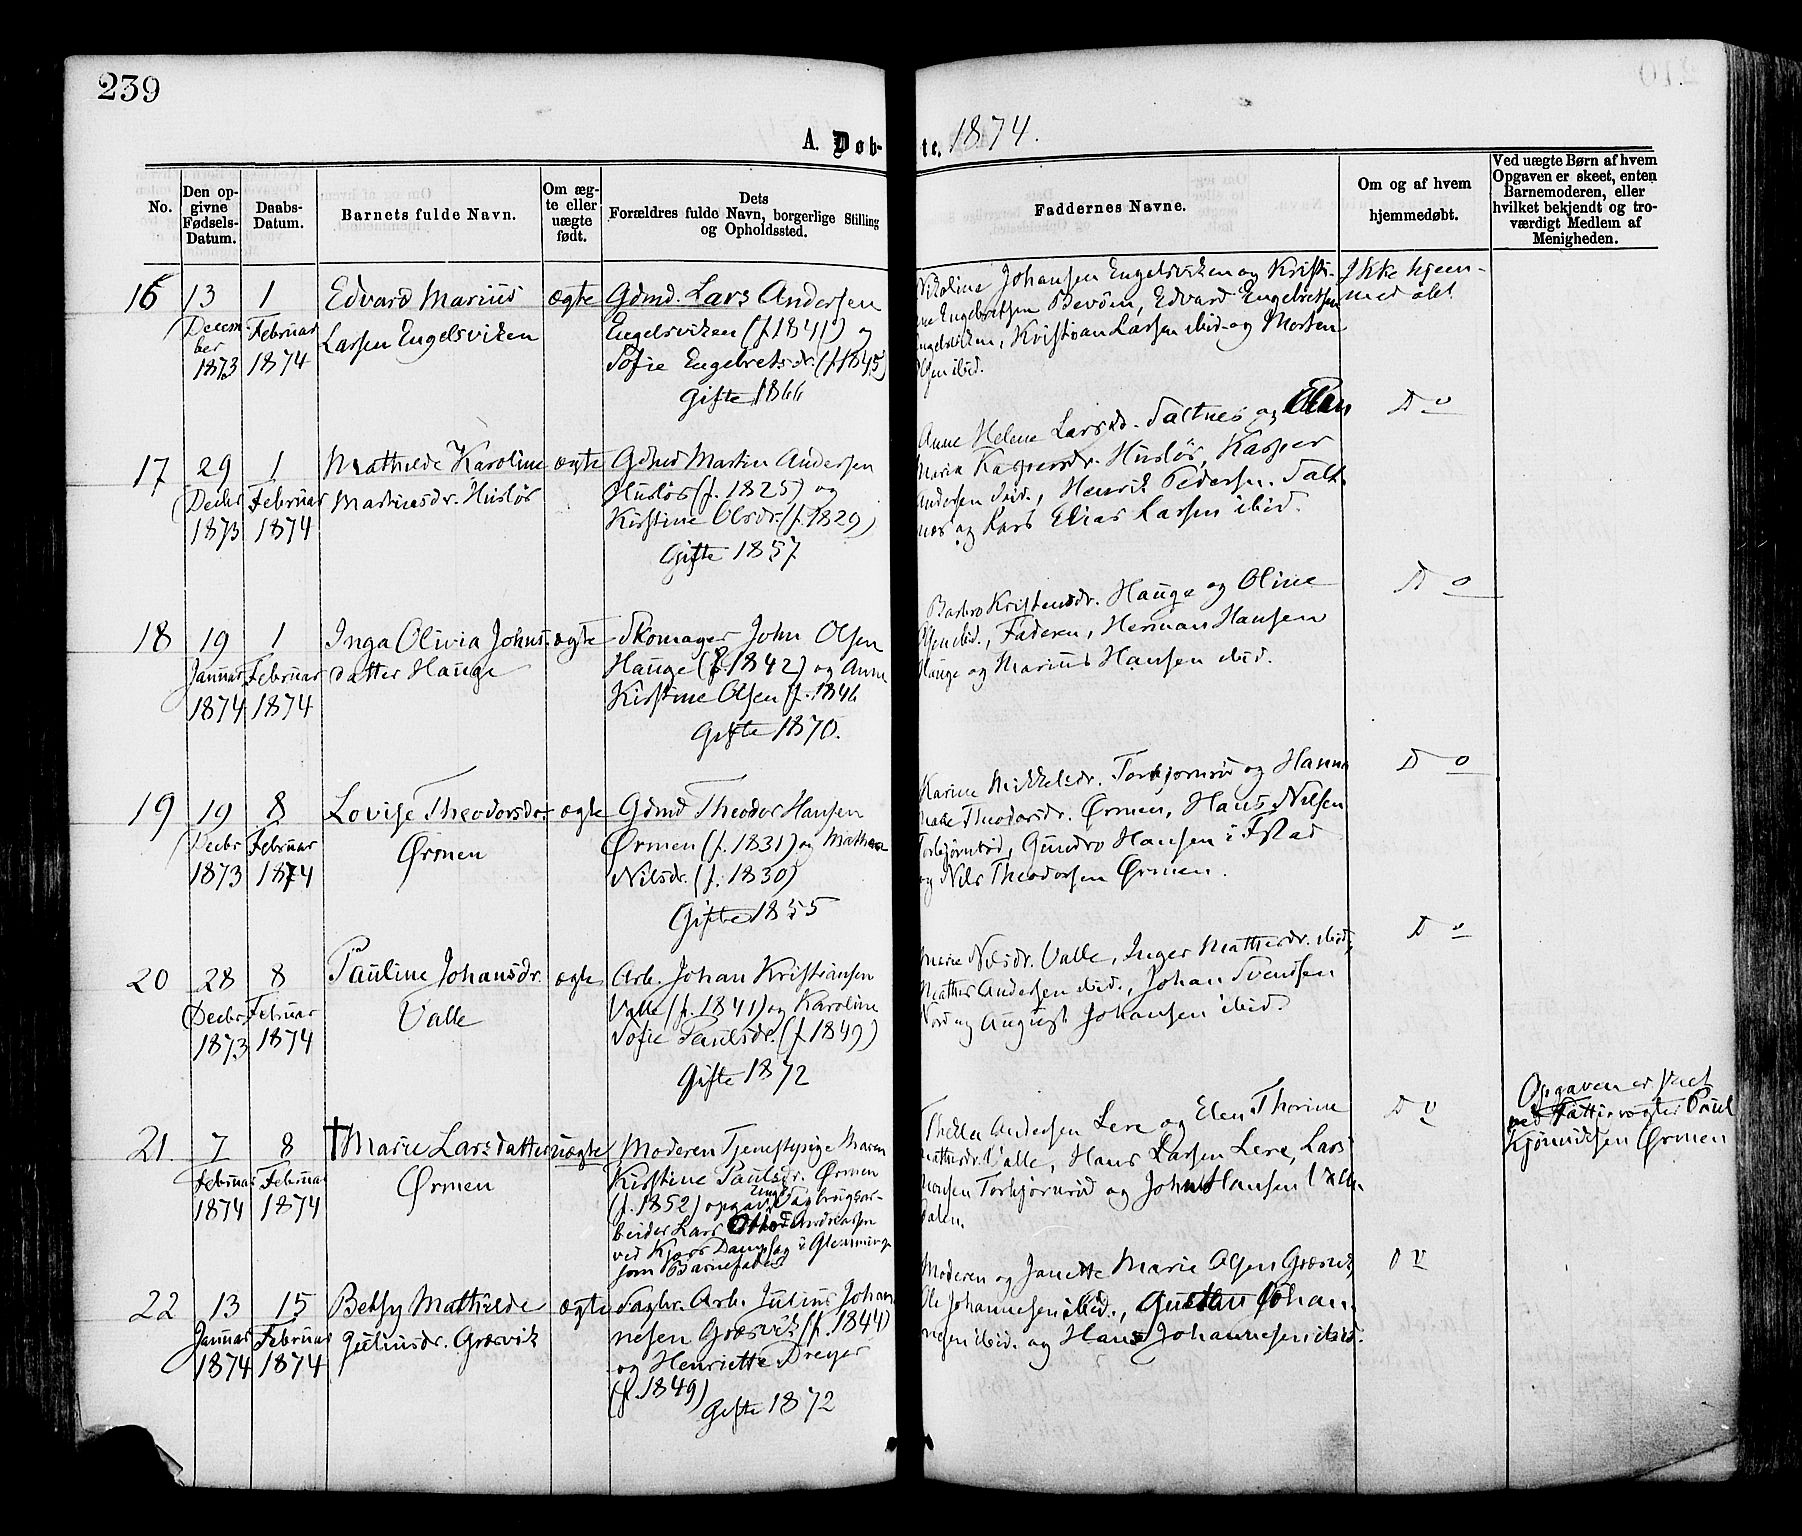 239
A. Døbte. 1874.
No.
Den opgivne Fødsels-Datum.
Daabs-Datum.
Barnets fulde Navn.
Om ægte eller uægte født.
Dets Forældres fulde Navn, borgerlige Stilling og Opholdssted.
Faddernes Navne.
Om og af hvem hjemmedøbt.
Ved uægte Børn af hvem Opgaven er skeet, enten Barnemoderen, eller hvilket bekjendt og troværdigt Medlem af Menigheden.
16
13 December 1873
1 Februar 1874
Edvard Marius
Larsen Engelsviken
ægte
Gdmd. Lars Andersen
Engelsviken (f. 1841) og
Sofie Engebretsdr. (f. 1845)
Gifte 1866
Nikoline Johansen Engelsviken og Kristi-
ne Engebretsen Bevöen, Edvard Engebretsen
Engelsviken, Kristian Larsen ibid. og Morten
Olsen ibid.
Ikke hjem-
medøbt
17
29 Decbr 1873
1 Februar 1874
Mathilde Karoline
Martinsdr. Husløs
ægte
Gdmd Martin Andersen
Husløs (f. 1825) og
Kirstine Olsdr. (f. 1829)
Gifte 1857
Anne Helene Larsd. Saltnes og Elen
Maria Kaspersdr. Husløs, Kasper
Andersen ibid., Henrik Pedersen Salt-
næs og Lars Elias Larsen ibid.
D o
18
19 Januar 1874
1 Februar 1874
Inga Olivia Johns-
datter Hauge
ægte
Skomager John Olsen
Hauge (f. 1842) og Anne
Kirstine Olsen (f. 1846
Gifte 1870.
Barbro Kristensdr. Hauge og Oline
Olsen ibid., Faderen, Herman Hansen
Hauge og Marius Hansen ibid.
D o
19
19 Decbr 1873
8 Februar 1874
Lovise Theodorsdr.
Ørmen
ægte
Gdmd Theodor Hansen
Ørmen (f. 1831) og Mathea
Nilsdr. (f. 1830)
Gifte 1855
Karine Mikkelsdr. Torbjørnrød og Hanna
Theodorsdr. Ørmen, Hans Nilsen
Torbjørnrød, Gundro Hansen i Fstad
og Nils Theodorsen Ørmen.
D o
20
28 Decbr. 1873
8 Februar 1874
Pauline Johansdr.
Valle
ægte
Arb. Johan Kristiansen
Valle (f. 1841) og Karoline
Sofie Paulsdr. (f. 1849)
Gifte 1872
Marie Nilsdr. Valle, Inger Mathisdr. ibid,
Mathis Andersen ibid., Johan Svendsen
Nord og August Johansen ibid.
D o
21.
7 Februar 1874
8 Februar 1874
† Marie Larsdatter
Ørmen
uægte
Moderen Tjenestpige Maren
Kirstine Paulsdr. Ørmen
(f. 1852) opgav Ungk. Sagbrugsar-
beider Lars Andreasen
ved Kjørs Dampsag i Glemminge
som Barnefader
Thea Andersen Lere og Elen Thorine
Mathisdr. Valle, Hans Larsen Lere, Lars
Monsen Torbjørnrød og John Hansen
dalen.
D o
Opgaven er skeet
ved Fattigvogter Poul
Kjønigsen Ørmen
22
13 Januar 1874
15 Februar 1874
Betsy Mathilde
Juliusdr. Græsvik
ægte
Sagbr. Arb. Julius Johan-
nesen Græsvik (f. 1844)
og Henriette Dreyer
(f. 1849)
Gifte 1872
Moderen og Janette Marie Olsen Græsvik,
Ole Johannesen ibid., Gustav Johan-
nesen ibid. og Hans Johannesen ibid.
D o